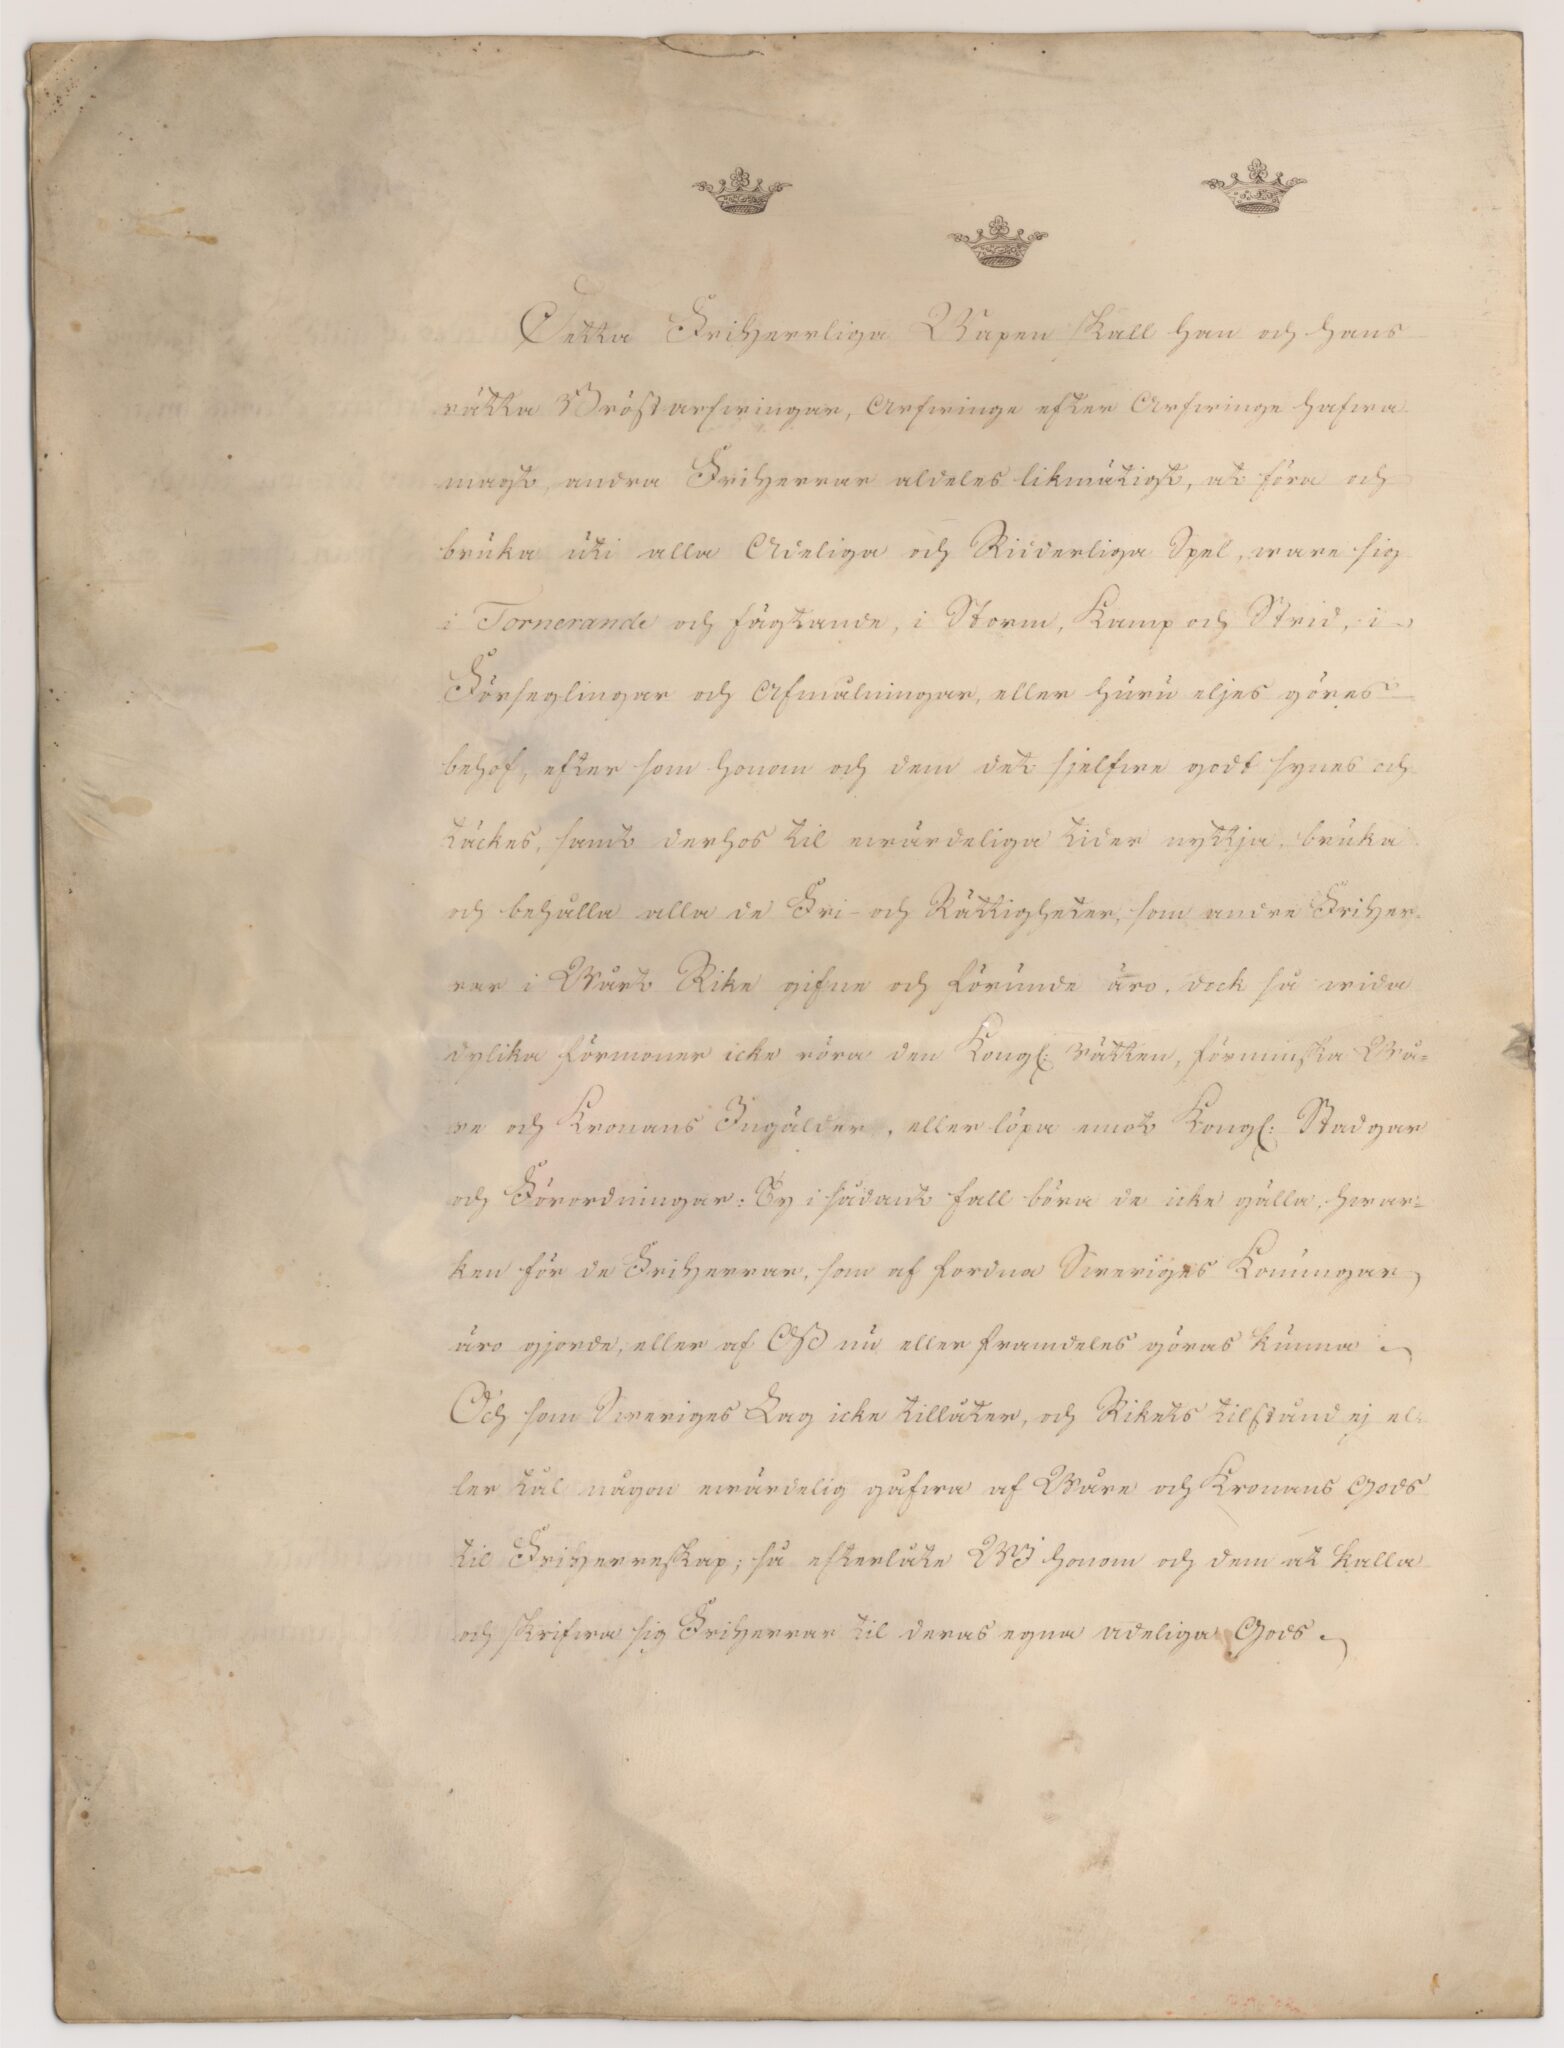 Detta Friherrliga Wapen skall han och hans
rätta Bröstarfwingar, Arfwinge efter Arfwinge hafwa
magt, andra Friherrar aldeles likmätigt, at föra och
bruka uti alla Adeliga och Ridderliga Spel, ware sig
i Tornerande och fägtande, i Storm, Kamp och Strid, i
Förseglingar och Afmålningar, eller huru eljes göres
behof, efter som honom och dem det sjelfwe godt synes och
täckes, samt derhos til ewärdeliga tider nyttja, bruka
och behålla alla de Fri- och Rättigheter, som andre Friher-
rar i Wårt Rike gifne och förunde äro, dock så wida
dylika förmoner icke röra den Kongl: Rätten, förminska Wå-
re och Kronans Ingälder, eller löpa emot Kongl: Stadgar
och Förordningar. Ty i sådant fall böra de icke gälla, hwar-
ken för de Friherrar, som af fordna Sweriges Konungar
äro gjorde, eller af Oss nu eller framdeles göras kunna.
Och som Sweriges Lag icke tillåter, och Rikets tilstånd ej el-
ler tål någon ewärdelig gåfwa af Wåre och Kronans Gods
til Friherreskap; så efterlåte Wi honom och dem at kalla
och skrifwa sig Friherrar til deras egna adeliga Gods.